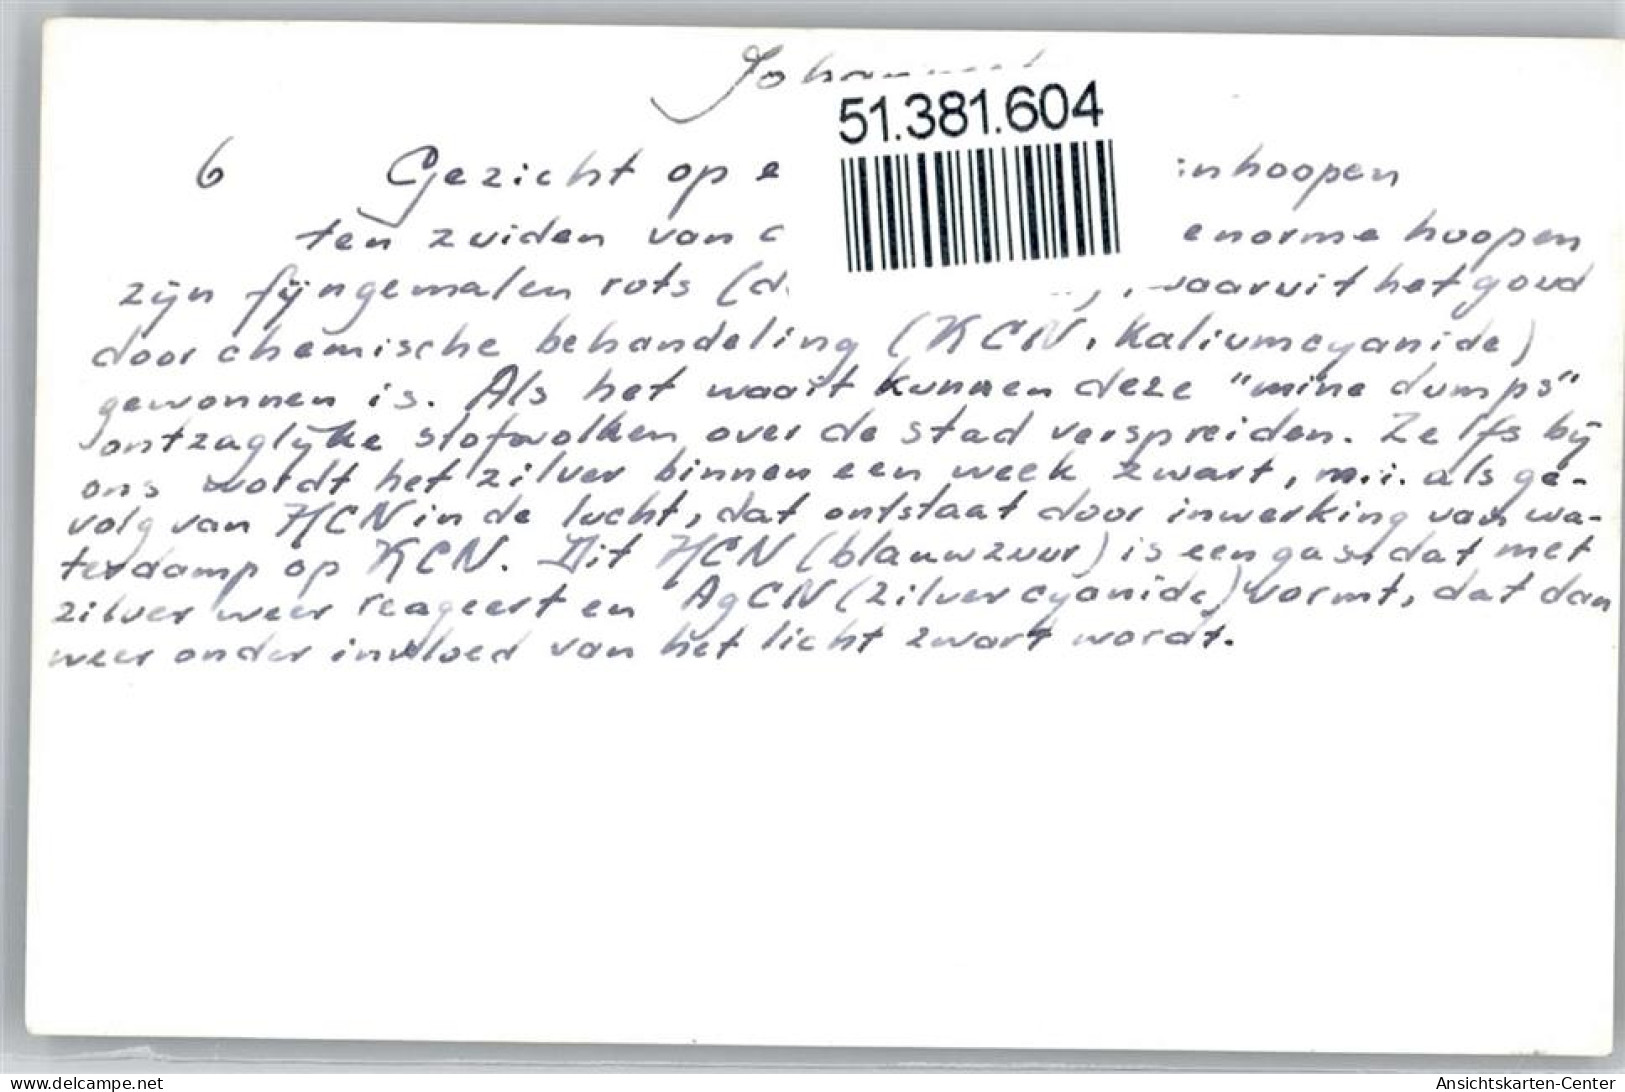 51.381.604
6 Gezicht op e inhoopen
ten zuiden van enorme hoopen
zijn fijngemalen rots (d waaruit het goud
door chemische behandeling (KCN, Kaliumcyanide)
gewonnen is. Als het waait kunnen deze "mine dumps"
ontzaglijke stofwolken over de stad verspreiden. Zelfs bij
ons wordt het zilver binnen een week zwart, m.i. als ge-
volg van HCN in de lucht, dat ontstaat door inwerking van wa-
terdamp op KCN. Dit HCN (blauwzuur) is een gas, dat met
zilver weer reageert en AgCN (zilvercyanide) vormt, dat dan
weer onder invloed van het licht zwart wordt.
www.delcampe.net
Ansichtskarten-Center